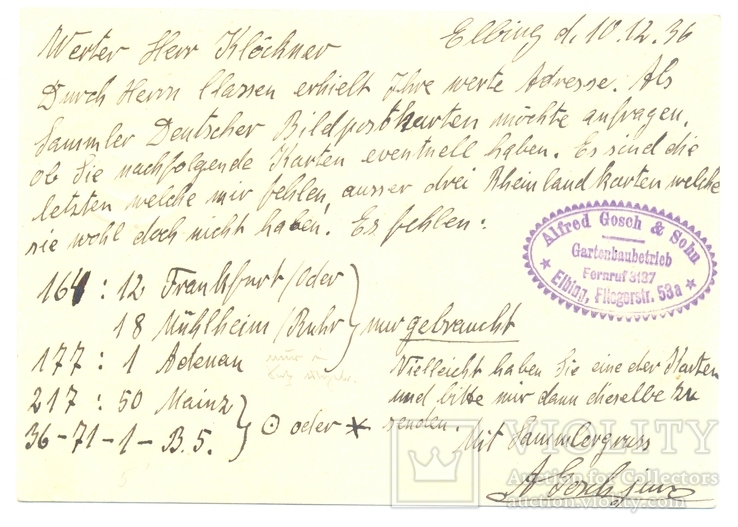 Elbing d. 10.12.36
Werter Herr Klöckner
Durch Herrn Classen erhielt Ihre werte Adresse. Als
Sammler Deutscher Bildpostkarten möchte anfragen,
ob Sie nachfolgende Karten eventuell haben. Es sind die
letzten welche mir fehlen, ausser drei Rheinlandkarten welche
sie wohl doch nicht haben! Es fehlen:
Alfred Gosch & Sohn
Gartenbaubetrieb
Fernruf 3137
Elbing, Fliegerstr. 53a
164 : 12 Frankfurt/Oder
18 Mühlheim/Ruhr
nur gebraucht
177 : 1 Adenau
217 : 50 Mainz
36-71-1-B.5.
⊙ oder *
Vielleicht haben Sie eine der Karten
und bitte mir dann dieselbe zu
senden.
Mit Sammlergruss
A Gosch jun
VIOLITY
Auction for Collectors
auction.violity.com